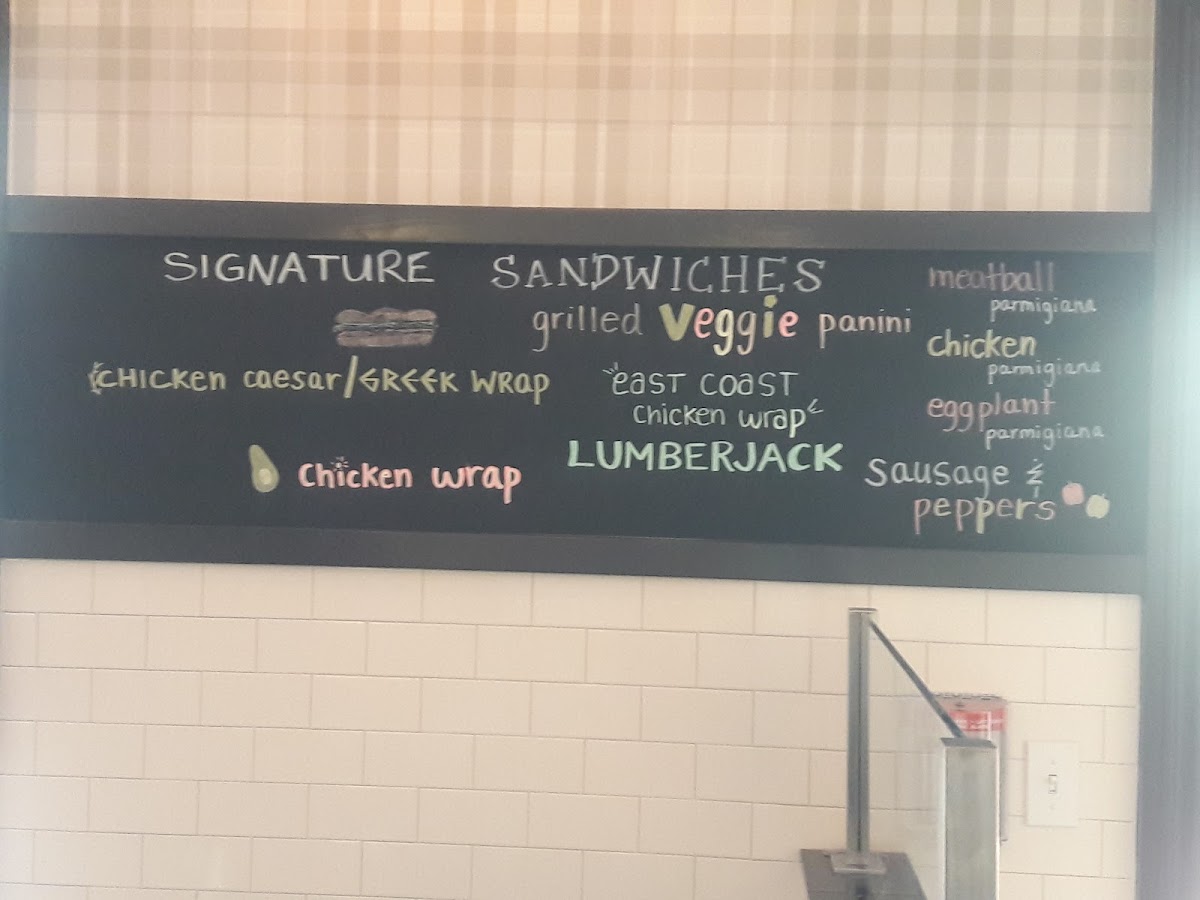 SIGNATURE SANDWICHES
CHICKEN caesar/GREEK WRAP
Chicken wrap
grilled Veggie panini
EAST COAST
Chicken wrap
LUMBERJACK
meatball
parmigiana
chicken
parmigiana
eggplant
parmigiana
Sausage &
peppers